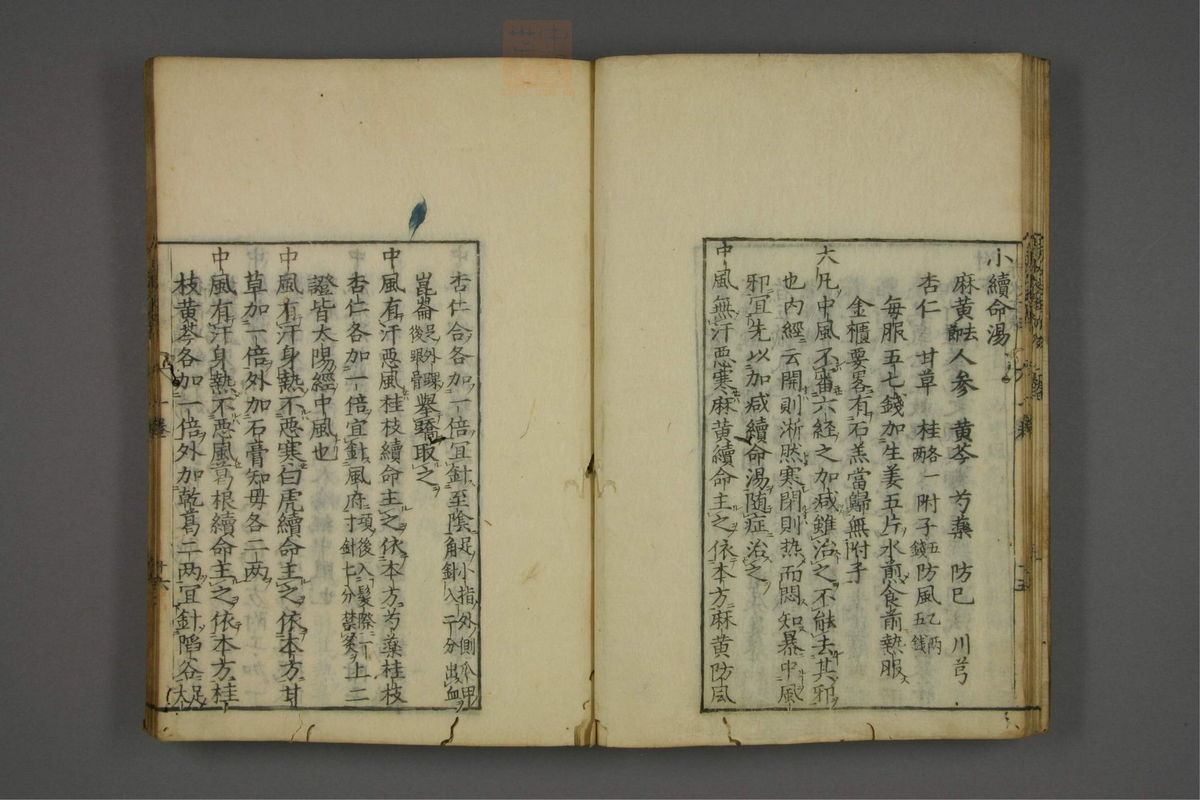 小續命湯
麻黃節去 人參 黃芩 芍藥 防已 川芎
杏仁 甘草 桂各一兩 附子五錢 防風乙兩五錢
每服五七錢加生姜五片水煎食前熱服
金櫃要畧有石羔當歸無附子
大凡中風不審六経之加减雖治之不能去其邪
也內經云開則淅然寒閉則热而悶知暴中風
邪宜先以加减續命湯随症治之
中風無汗惡寒麻黃續命主之依本方麻黃防風
杏仁合各加一倍宜針至陰足小指外側爪甲角針入二分出血
崑崙足外踝後跟骨 舉蹻取之
中風有汗惡風桂枝續命主之依本方芍藥桂枝
杏仁各加一倍宜針風府項後入髮際一寸上二寸針七分禁灸
證皆太陽經中風也
中風有汗身熱不惡寒白虎續命主之依本方甘
草加一倍外加石膏知母各二兩
中風有汗身熱不惡風葛根續命主之依本方桂
枝黃芩各加一倍外加乾葛二兩宜針陷谷足大